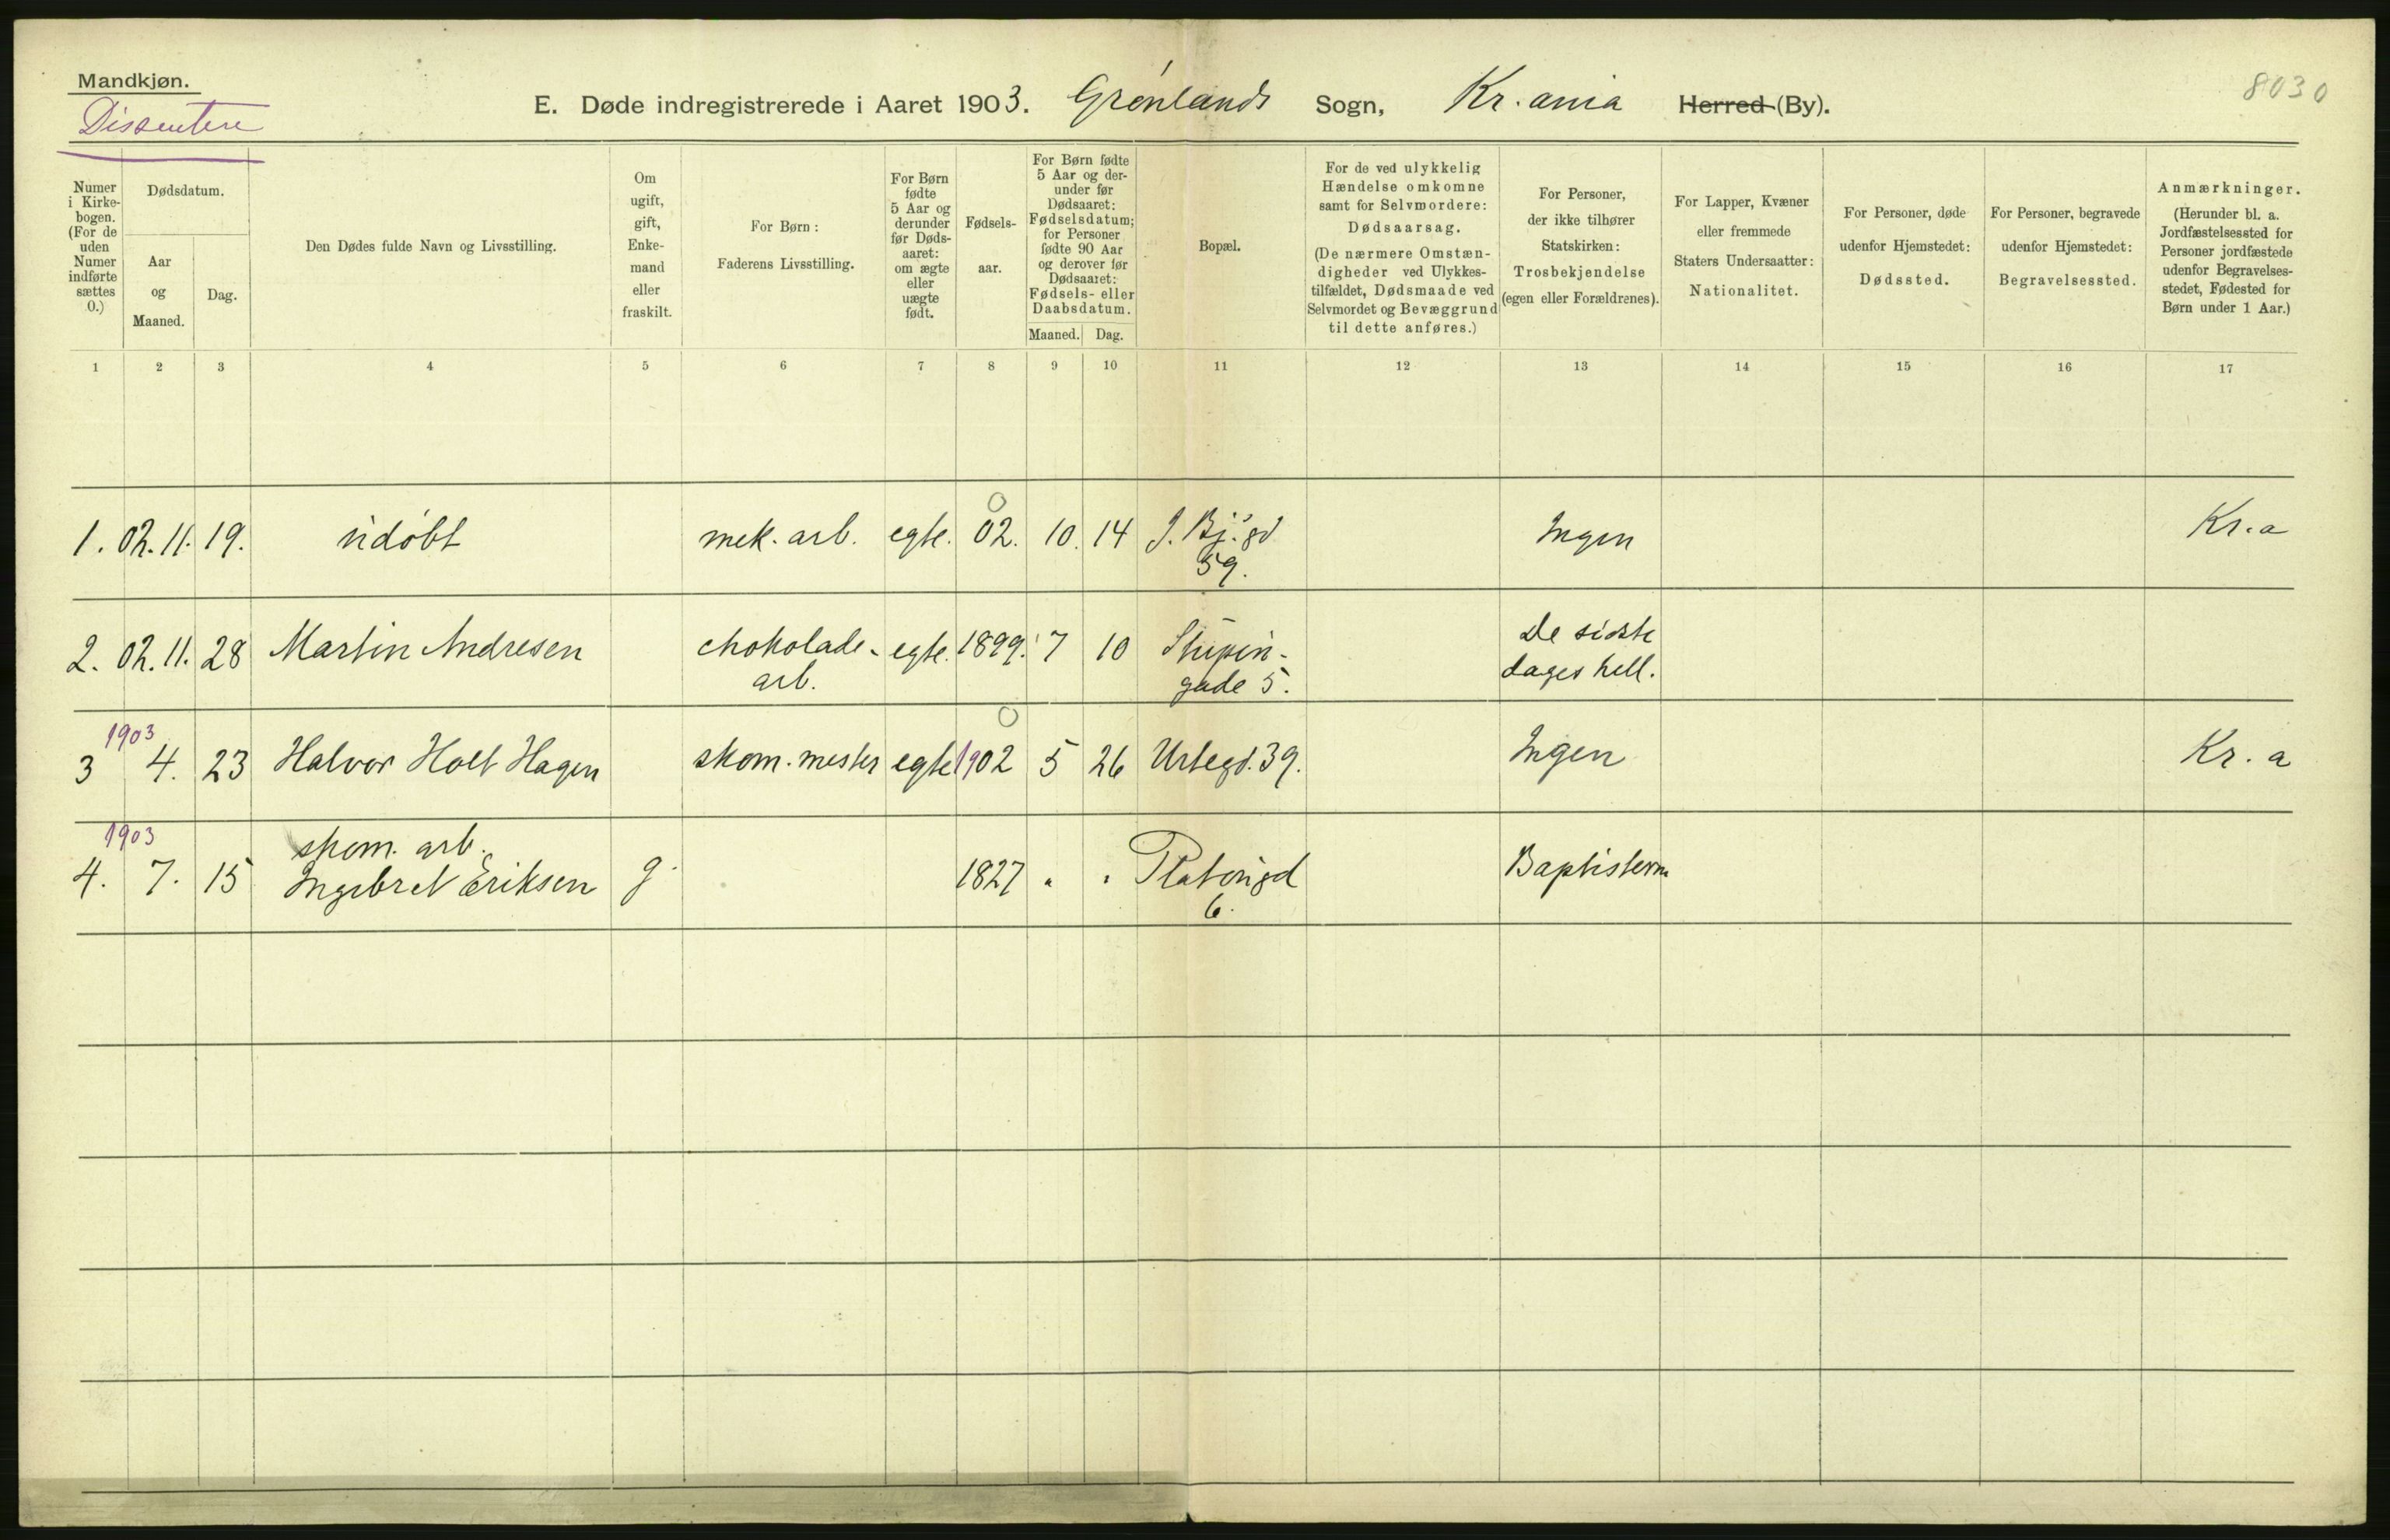 Mandkjøn.
Dissentere
E. Døde indregistrerede i Aaret 1903. Grønlands Sogn, Kr.ania Herred (By).
8030
Numer i Kirkebogen. (For de uden Numer indførte sættes 0.)
Dødsdatum.
Aar og Maaned.
Dag.
Den Dødes fulde Navn og Livsstilling.
Om ugift, gift, Enkemand eller fraskilt.
For Børn: Faderens Livsstilling.
For Børn fødte 5 Aar og derunder før Dødsaaret: om ægte eller uægte født.
Fødselsaar.
For Børn fødte 5 Aar og derunder før Dødsaaret: Fødselsdatum; for Personer fødte 90 Aar og derover før Dødsaaret: Fødsels- eller Daabsdatum.
Maaned. Dag.
Bopæl.
For de ved ulykkelig Hændelse omkomne samt for Selvmordere: Dødsaarsag. (De nærmere Omstændigheder ved Ulykkestilfældet, Dødsmaade ved Selvmordet og Bevæggrund til dette anføres.)
For Personer, der ikke tilhører Statskirken: Trosbekjendelse (egen eller Forældrenes).
For Lapper, Kvæner eller fremmede Staters Undersaatter: Nationalitet.
For Personer, døde udenfor Hjemstedet: Dødssted.
For Personer, begravede udenfor Hjemstedet: Begravelsessted.
Anmærkninger. (Herunder bl. a. Jordfæstelsessted for Personer jordfæstede udenfor Begravelsesstedet, Fødested for Børn under 1 Aar.)
1 2 3 4 5 6 7 8 9 10 11 12 13 14 15 16 17
1. 02.11. 19. udøbt mek. arb. egte. 02. 10. 14 J. Bj.'gd 59. Ingen Kr.a
2. 02.11. 28 Martin Andresen chokolade-arb. egte. 1899. 7 10 Stupin-gade 5. De sidste dages hell.
3 1903 4. 23 Halvor Holt Hagen skom. mester egte 1902 5 26 Urtegd. 39. Ingen Kr. a
4. 1903 7. 15 skom. arb. Ingebret Eriksen g. 1827 " " Platougd 6. Baptistern